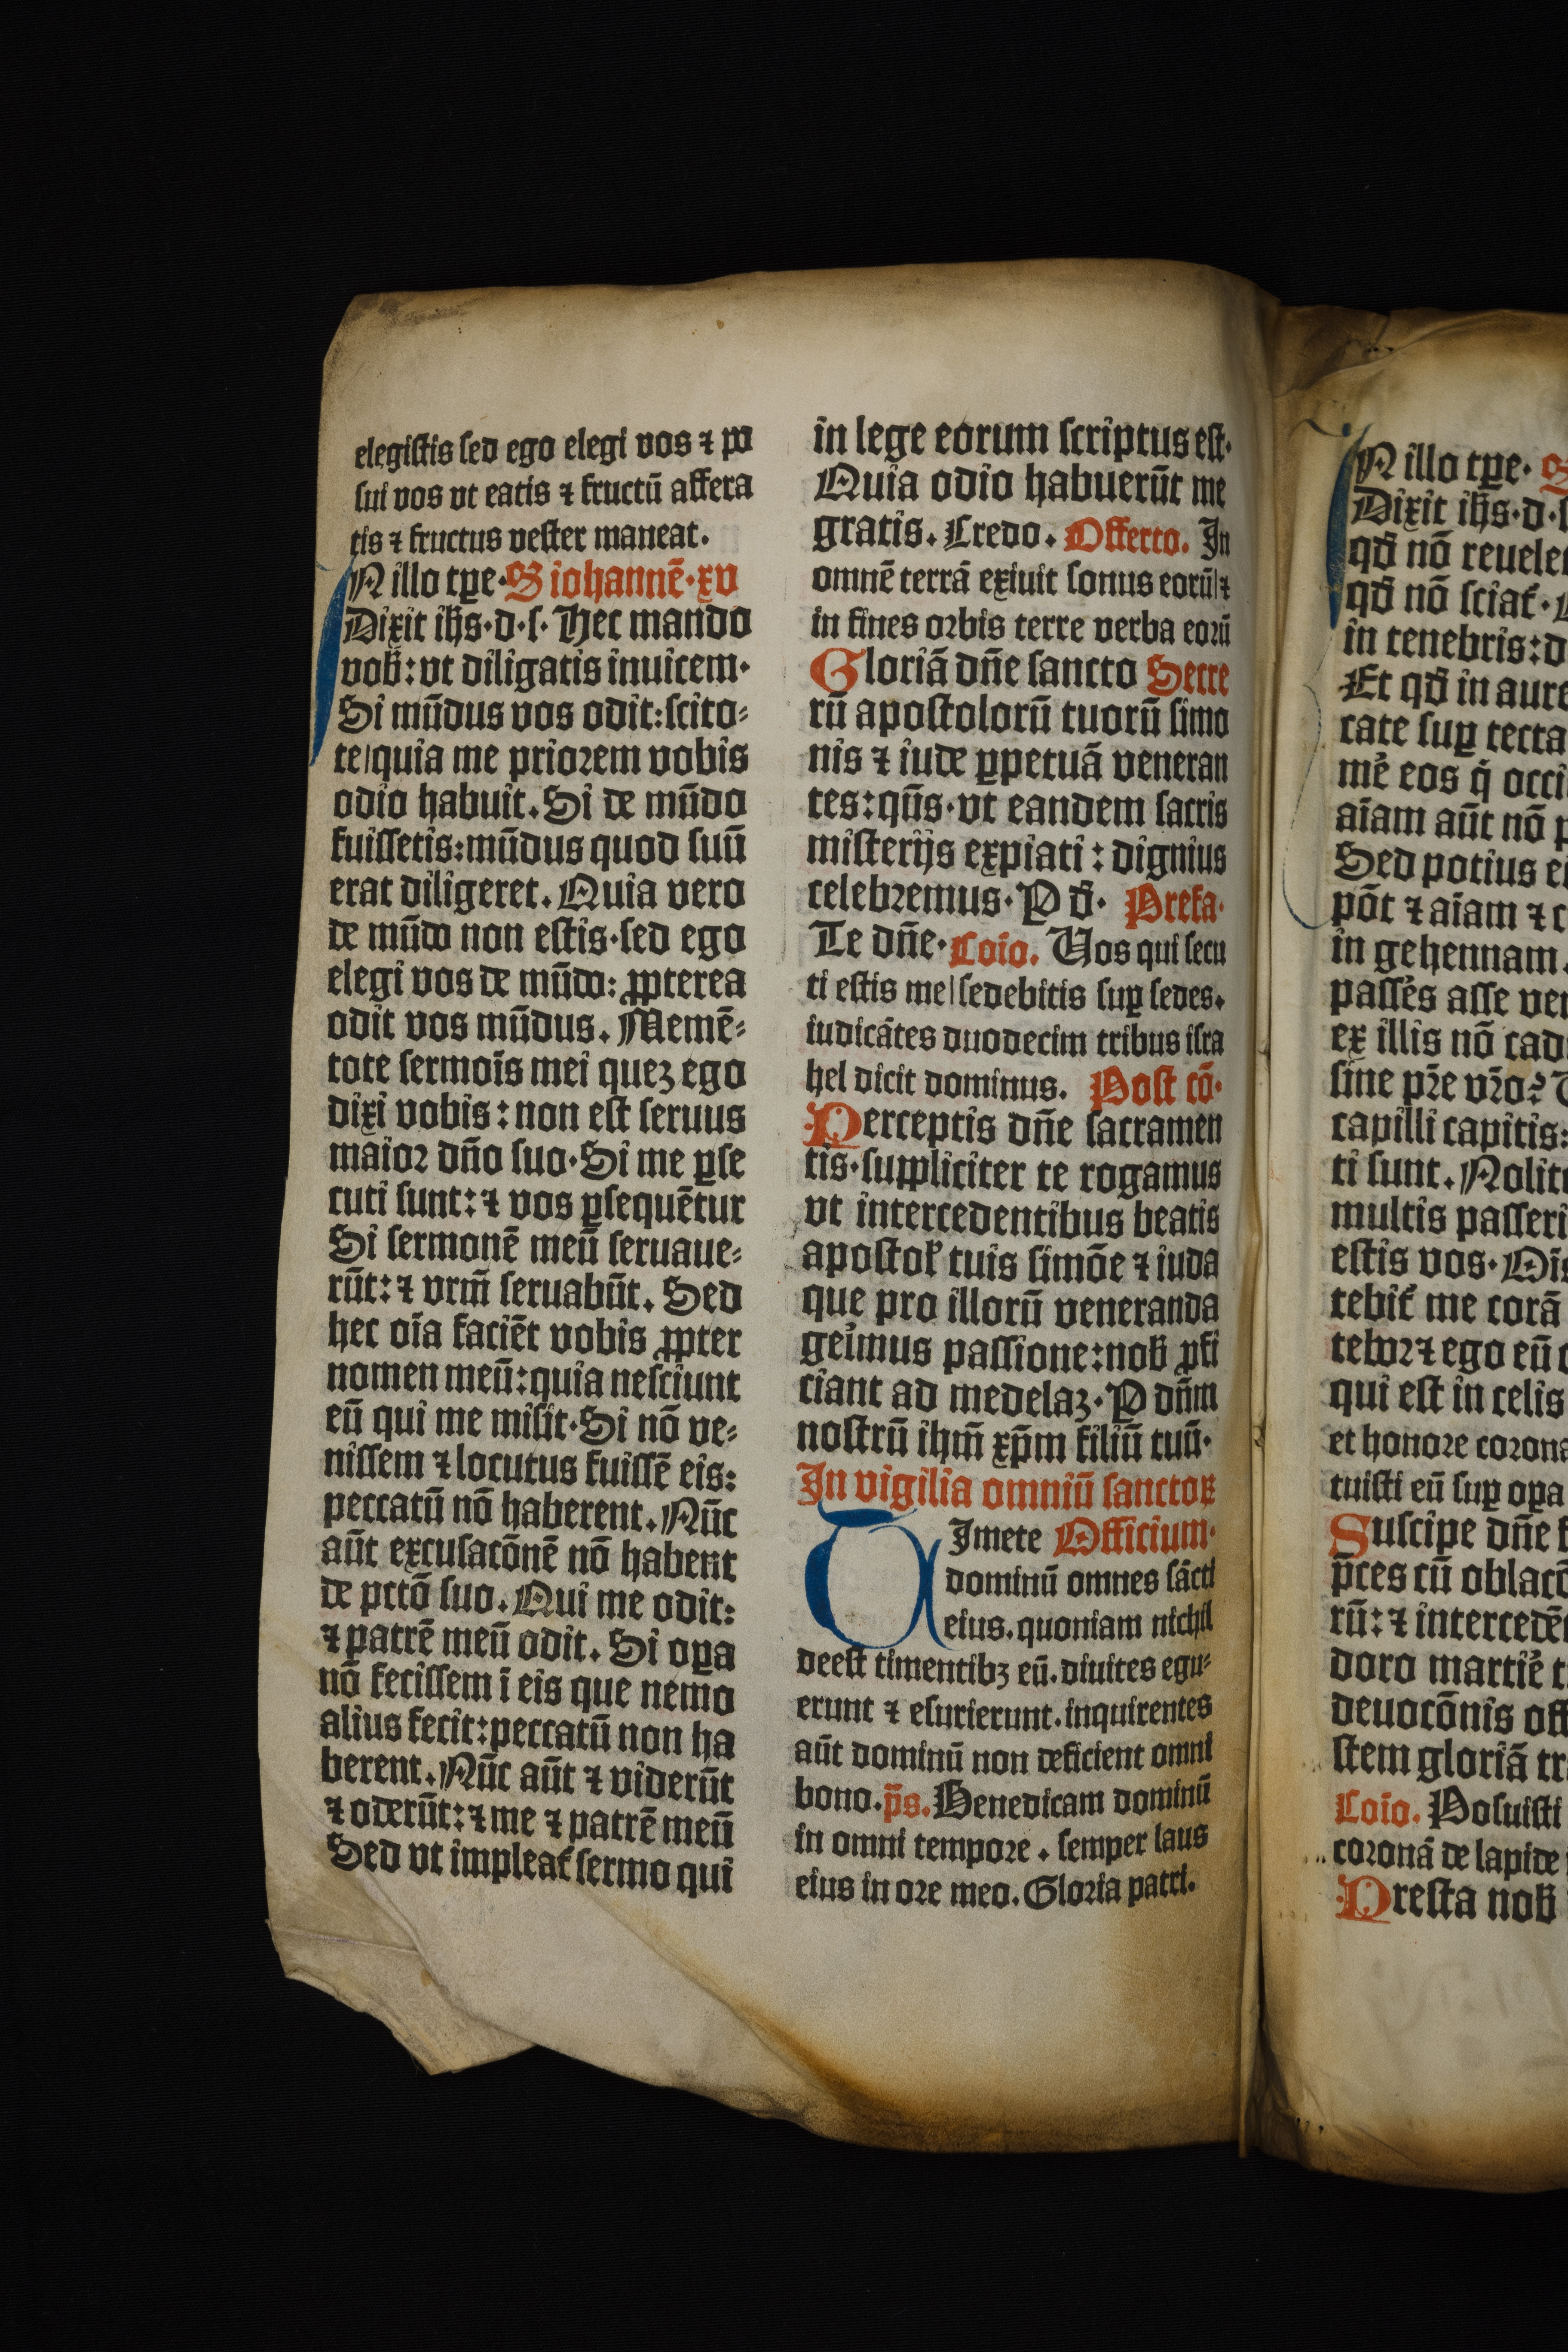 elegistis sed ego elegi vos ⁊ po
sui vos vt eatis ⁊ fructū affera
tis ⁊ fructus vester maneat.
IN illo tꝑe· S iohannē·xv
Dixit ihs·d·s· Hec mando
vob̄: vt diligatis inuicem·
Si mūdus vos odit: scito⸗
te|quia me priorem vobis
odio habuit. Si de mūdo
fuissetis: mūdus quod suū
erat diligeret. Quia vero
de mūdo non estis· sed ego
elegi vos de mūdo: ꝓpterea
odit vos mūdus. Memē⸗
tote sermoīs mei quez ego
dixi vobis: non est seruus
maior dn̄o suo· Si me ꝑse
cuti sunt: ⁊ vos ꝑsequētur
Si sermonē meū seruaue⸗
rūt: ⁊ vrm̄ seruabūt. Sed
hec oīa faciēt vobis ꝓpter
nomen meū: quia nesciunt
eū qui me misit· Si nō ve⸗
nissem ⁊ locutus fuissē eis:
peccatū nō haberent. Nūc
aūt excusacōnē nō habent
de pctō suo. Qui me odit:
⁊ patrē meū odit. Si oꝑa
nō fecissem ī eis que nemo
alius fecit: peccatū non ha
berent. Nūc aūt ⁊ viderūt
⁊ oderūt: ⁊ me ⁊ patrē meū
Sed vt impleat̄ sermo qui
in lege eorum scriptus est·
Quia odio habuerūt me
gratis. Credo. Offerto. In
omnē terrā exiuit sonus eorū|⁊
in fines orbis terre verba eorū
Gloriā dn̄e sancto Secre
rū apostolorū tuorū simo
nis ⁊ iude ꝑpetuā veneran
tes: qūs· vt eandem sacris
misterijs expiati: dignius
celebremus· P d̄· Prefa·
Te dn̄e· Coīo. Vos qui secu
ti estis me|sedebitis suꝑ sedes.
iudicātes duodecim tribus isra
hel dicit dominus. Post cō·
Perceptis dn̄e sacramen
tis· suppliciter te rogamus
vt intercedentibus beatis
apostol̄ tuis simōe ⁊ iuda
que pro illorū veneranda
geīmus passione: nob̄ ꝓfi
ciant ad medelaz· P dn̄m
nostrū ihm̄ xp̄m filiū tuū·
In vigilia omniū sanctoꝝ
TImete Officium·
dominū omnes sācti
eius. quoniam nichil
deest timentibꝫ eū. diuites egu⸗
erunt ⁊ esurierunt. inquirentes
aūt dominū non deficient omni
bono. p̄s. Benedicam dominū
in omni tempore. semper laus
eius in ore meo. Gloria patri.
IN illo tꝑe·
Dixit ihs·d·
qd̄ nō
qd̄ nō sciat̄·
in tenebris:
Et qd̄ in
suꝑ tecta
eos
aīam aūt nō
Sed potius
pōt ⁊ aīam ⁊
in gehennam.
asse
ex illis nō
sine pr̄e vr̄o?
capilli capitis:
ti sunt.
multis
estis vos·
tebit̄ me corā
tebor ⁊ ego eū
qui est in celis
et honore
tuisti eū suꝑ oꝑa
Suscipe dn̄e
p̄ces cū
rū: ⁊
doro
deuocōnis
stem gloriā
Coīo. Posuisti
coronā de lapide
Presta nob̄